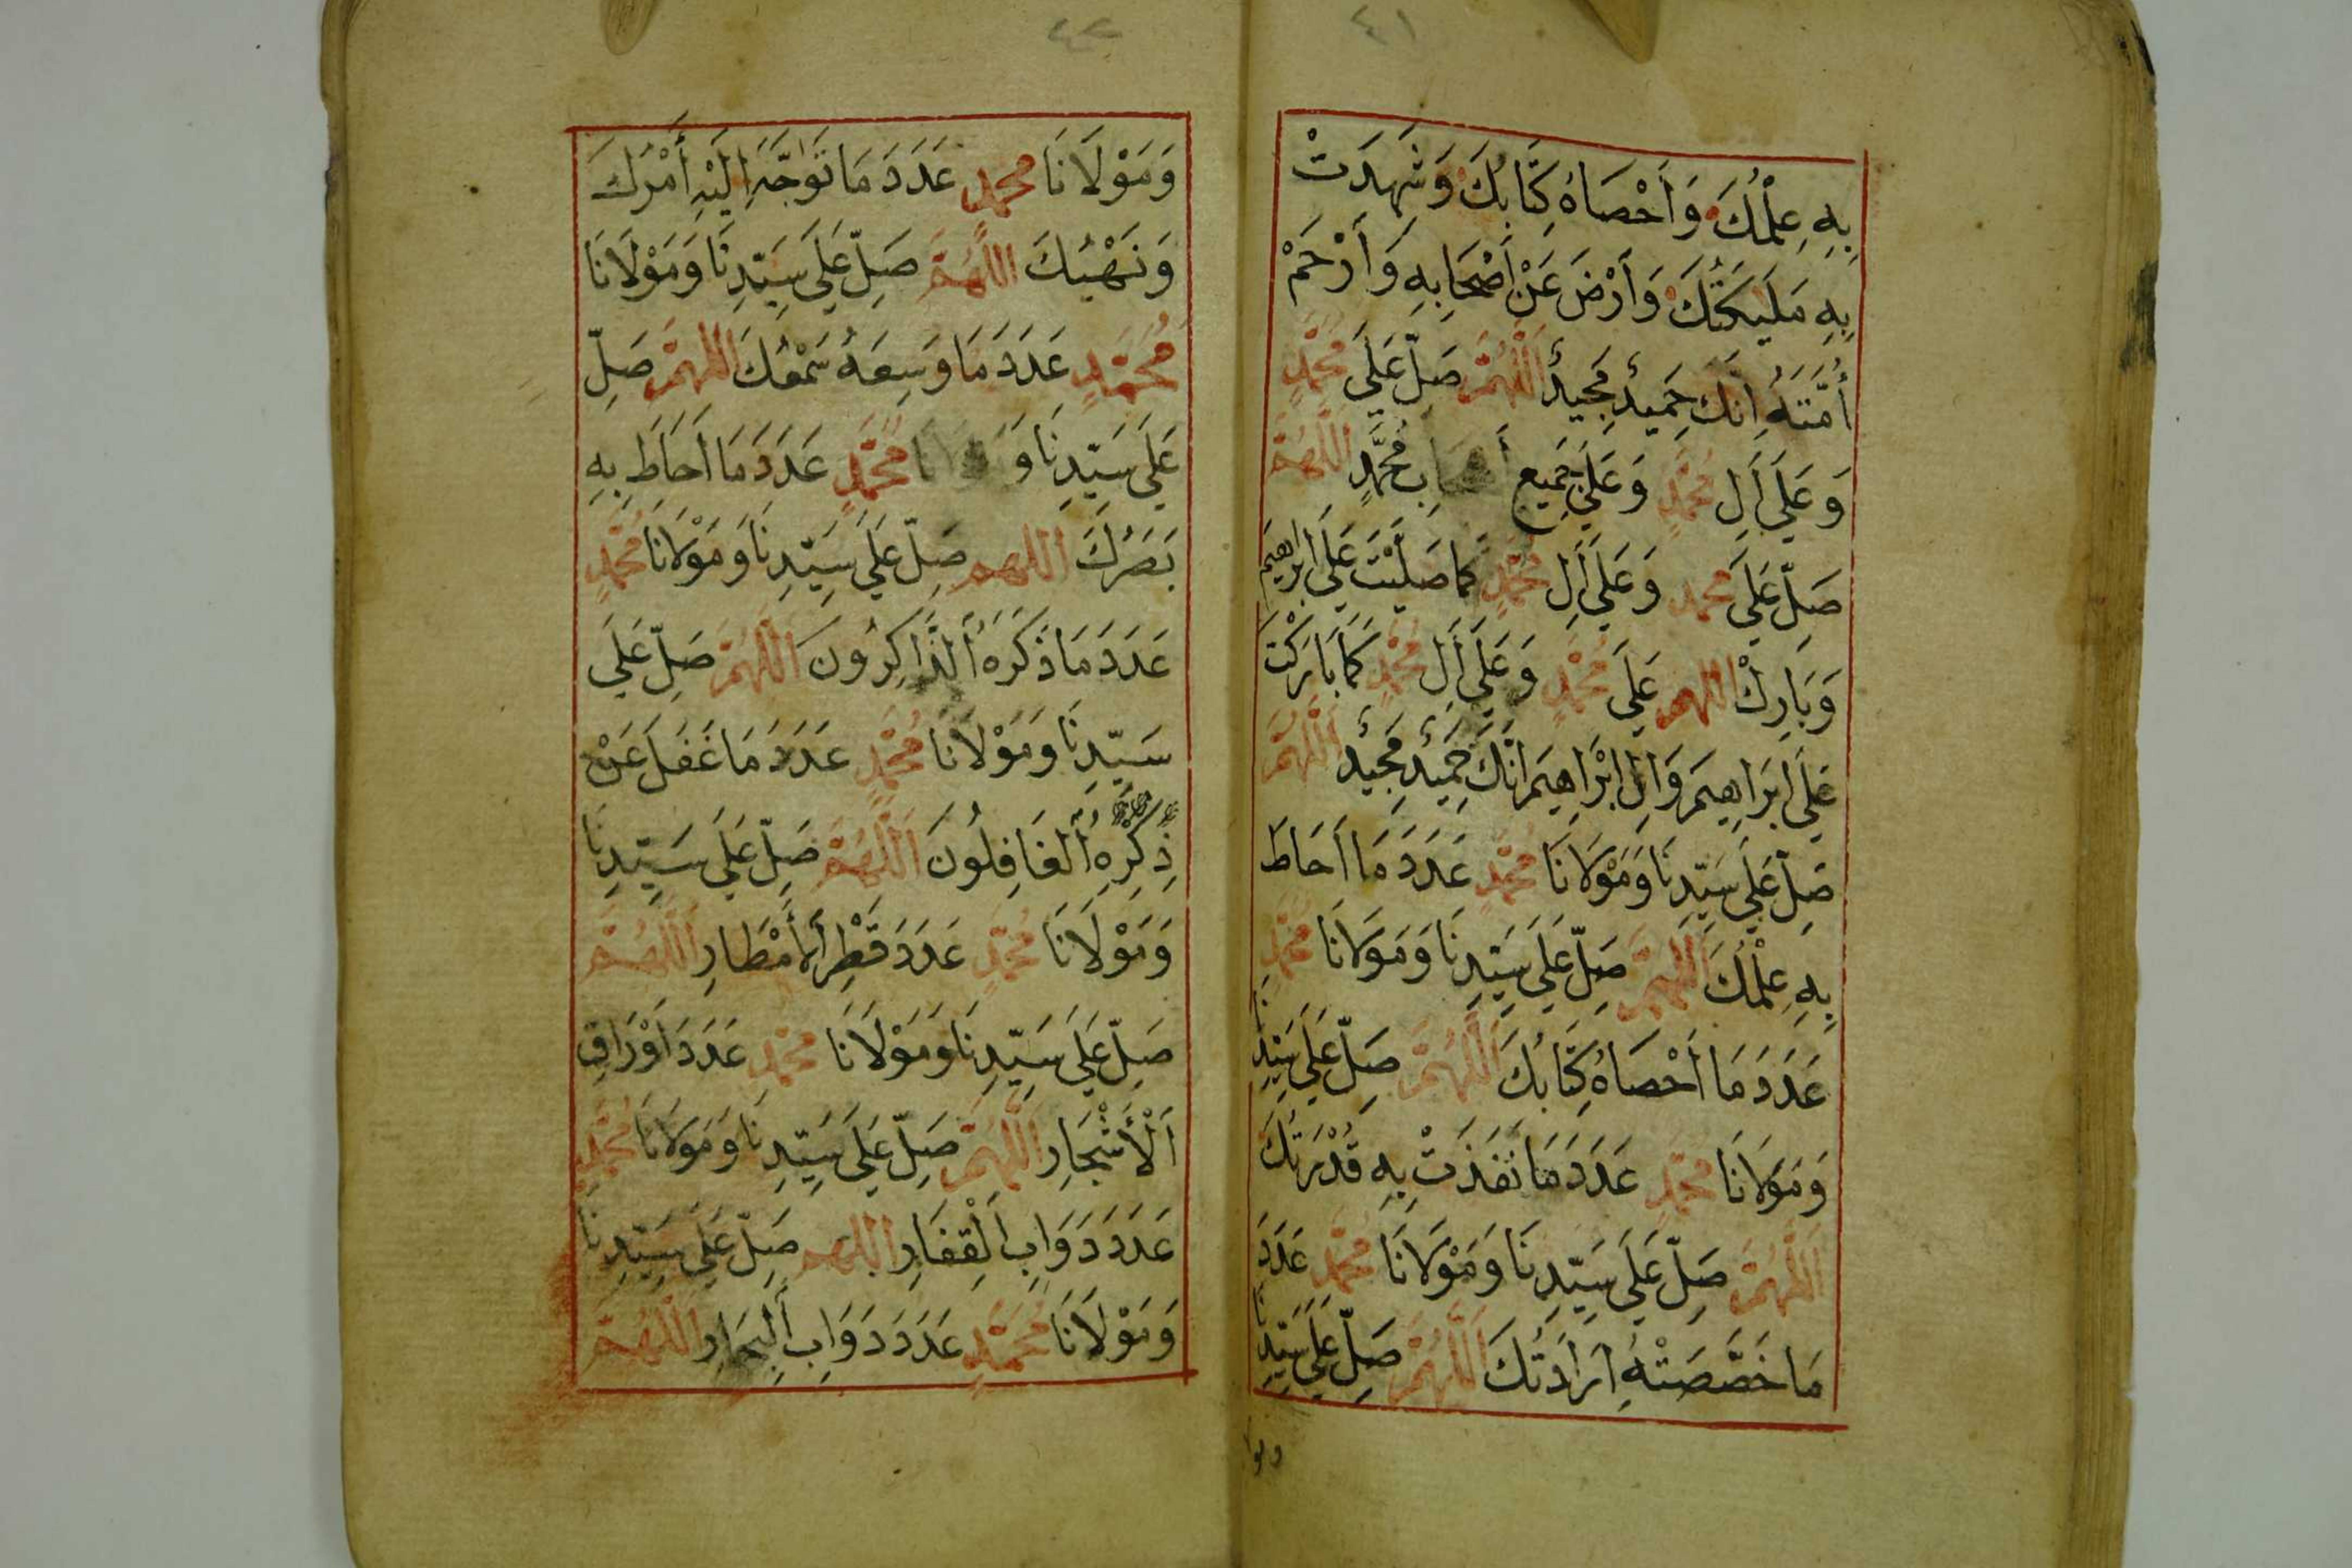 ٤١
بِهِ عِلْمُكَ وَأَحْصَاهُ كِتَابُكَ وَشَهِدَتْ
بِهِ مَلَيِكَتُكَ وَأَرْضَ عَنْ أَصْحَابِهِ وَأَرْحَمْ
أُمَّتَهُ اِنَّكَ حَمِيدٌ مَجِيدٌ اَللَّهُمَّ صَلِّ عَلَى مُحَمَّدٍ
وَعَلَى أَلِ مُحَمَّدٍ وَعَلَى جَمِيعِ أَصْحَابِ مُحَمَّدٍ اَللَّهُمَّ
صَلِّ عَلَى محمد وَعَلَى أَلِ مُحَمَّدٍ كَمَا صَلَّيْتَ عَلَى اِبْرَاهِيمَ
وَبَارِكْ اللهم عَلَى مُحَمَّدٍ وَعَلَى أَلِ مُحَمَّدٍ كَمَا بَارَكْتَ
عَلَى اِبْرَاهِيمَ وَالِ اِبْرَاهِيمَ اِنَّكَ حَمِيدٌ مَجِيدٌ اَللَّهُمَّ
صَلِّ عَلَى سَيِّدِنَا وَمَوْلَانَا مُحَمَّدٍ عَدَدَ مَا اَحَاطَ
بِهِ عِلْمُكَ اَللَّهُمَّ صَلِّ عَلَى سَيِّدِنَا وَمَوْلَانَا مُحَمَّدٍ
عَدَدَ مَا أَحْصَاهُ كِتَابُكَ اَللَّهُمَّ صَلِّ عَلَى سَيِّدِنَا
وَمَوْلَانَا مُحَمَّدٍ عَدَدَ مَا نَفَذَتْ بِهِ قُدْرَتُكَ
اَللَّهُمَّ صَلِّ عَلَى سَيِّدِنَا وَمَوْلَانَا مُحَمَّدٍ عَدَدَ
مَا خَصَّصَتْهُ اِرَادَتُكَ اَللَّهُمَّ صَلِّ عَلَى سَيِّدِنَا
ومو
٤٢
وَمَوْلَانَا محمدٍ عَدَدَ مَا تَوَجَّهَ اِلَيْهِ أَمْرُكَ
وَنَهْيُكَ اللَّهُمَّ صَلِّ عَلَى سَيِّدِنَا وَمَوْلَانَا
مُحَمَّدٍ عَدَدَ مَا وَسِعَهُ سَمْعُكَ اَللهُمَّ صَلِّ
عَلَى سَيِّدِنَا وَمَوْلَانَا مُحَمَّدٍ عَدَدَ مَا اَحَاطَ بِهِ
بَصَرُكَ اللهم صَلِّ عَلَى سَيِّدِنَا وَمَوْلَانَا مُحَمَّدٍ
عَدَدَ مَا ذَكَرَهُ اَلذَّاكِرُونَ اَللَّهُمَّ صَلِّ عَلَى
سَيِّدِنَا وَمَوْلَانَا مُحَمَّدٍ عَدَدَ مَا غَفَلَ عَنْ
ذِكْرِهِ اُلْغَافِلُونَ اَللَّهُمَّ صَلِّ عَلَى سَيِّدِنَا
وَمَوْلَانَا مُحَمَّدٍ عَدَدَ قَطْرِ اَلْأَمْطَارِ اَللَّهُمَّ
صَلِّ عَلَى سَيِّدِنَا وَمَوْلَانَا مُحَمَّدٍ عَدَدَ اَوْرَاقِ
اَلْأَشْجَارِ اَللَّهُمَّ صَلِّ عَلَى سَيِّدِنَا وَمَوْلَانَا مُحَمَّدٍ
عَدَدَ دَوَابِ اَلْقِفَارِ اللهم صَلِّ عَلَى سَيِّدِنَا
وَمَوْلَانَا مُحَمَّدٍ عَدَدَ دَوَابِ اَلْبِحَارِ اَللَّهُمَّ